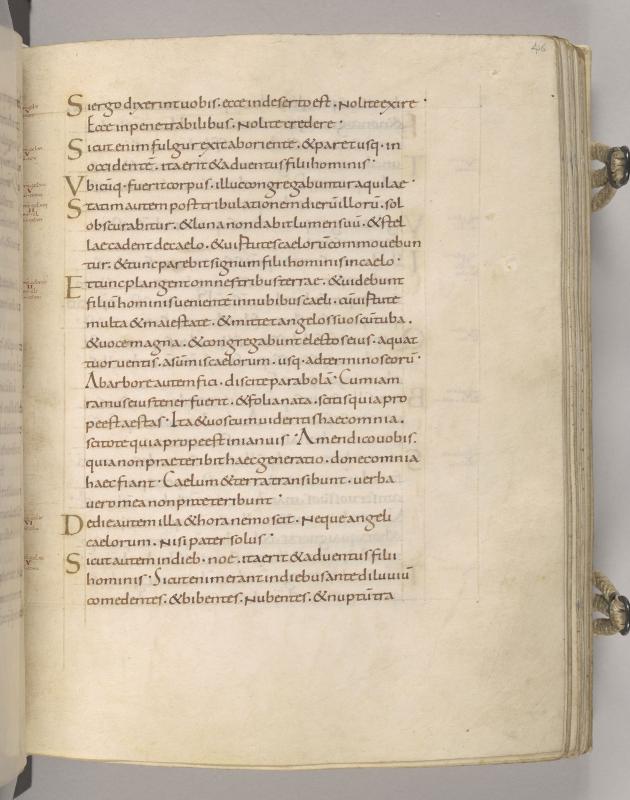 46
Si ergo dixerint uobis. ecce in deserto est. Nolite exire.
Ecce in penetrabilibus. Nolite credere.
Sicut enim fulgur exit ab oriente. & paret usq. in
occidentē. ita erit & aduentus filii hominis.
Vbicūq. fuerit corpus. illuc congregabuntur aquilae.
Statim autem post tribulationem dierū illorū. sol
obscurabitur. & luna non dabit lumen suū. & stel
lae cadent de caelo. & uirtutes caelorū commouebun
tur. & tunc parebit signum filii hominis in caelo.
Et tunc plangent omnes tribus terrae. & uidebunt
filiū hominis uenientē in nubibus caeli. cū uirtute
multa & maiestate. & mittet angelos suos cū tuba.
& uoce magna. & congregabunt electos eius. a quat
tuor uentis. a sūmis caelorum. usq. ad terminos eorū.
Ab arbore autem fici. discite parabolā. Cum iam
ramus eius tener fuerit. & folia nata. scitis quia pro
pe est aestas. Ita & uos cum uideritis haec omnia.
scitote quia prope est in ianuis. Amen dico uobis.
quia non praeteribit haec generatio. donec omnia
haec fiant. Caelum & terra transibunt. uerba
uero mea non preteribunt.
De die autem illa & hora nemo scit. Neque angeli
caelorum. Nisi pater solus.
Sicut autem in dieb. noe. ita erit & aduentus filii
hominis. Sicut enim erant in diebus ante diluuiū
comedentes. & bibentes. Nubentes. & nuptū tra